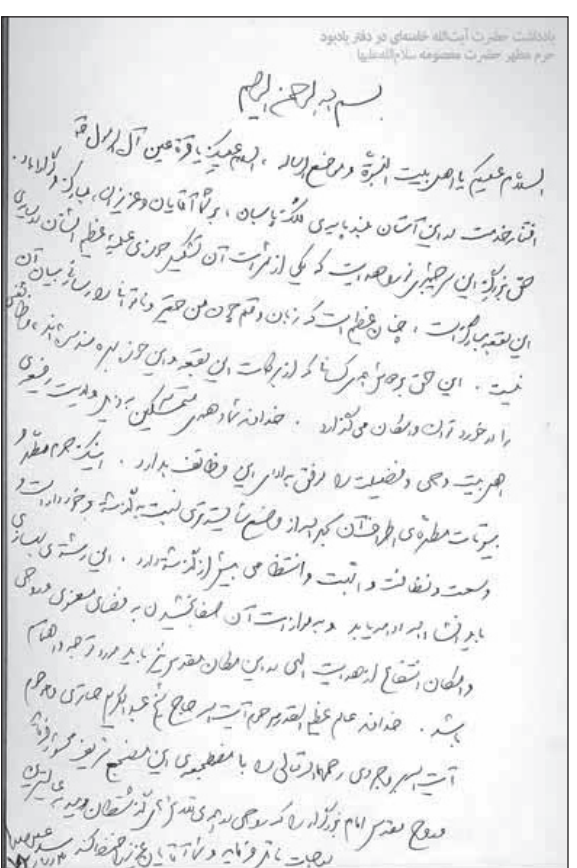 یادداشت حضرت آیت‌الله خامنه‌ای در دفتر یادبود
حرم مطهر حضرت معصومه سلام‌الله‌علیها
بسم الله الرحمن الرحیم
السلام علیکم یا اهل بیت النبوة و موضع الرسالة ، السلام علیک یا قرة عین آل الرسول
افتخار خدمت در این آستان بلند پایه‌ی ملائک پاسبان ، بر شما آقایان و عزیزان ، مبارک و گوارا باد .
حق بزرگ این سرچشمه‌ی نور وهدایت که یکی از ثمرات آن تشکیل حوزه‌ی علمیه‌ی عظیم الشأن در
این بقعه‌ی مبارکه است ، چنان عظیم است که زبان و قلم چون من حقیر و ناتوان را یارای بیان آن
نیست . این حق بر دوش همه‌ی کسانی که از برکات این بقعه و این حوزه بهره‌مند شده‌اند ،
را در خورد آن و امکان می‌گذارد . خداوند شما و همه‌ی متمسکین به ذیل ولایت
اهل بیت وحی و فضیلت را موفق به ادای این وظائف بدارد . اینک حرم مطهر و
بیوتات مطهره‌ی اطراف آن بحمدالله از وضع شایسته‌تری نسبت به گذشته برخوردار است و
وسعت و نظافت و انتظامی بیش از گذشته دارد . این رشته‌ی
باید ان‌شاءالله ادامه یابد و به موازات آن صفا بخشیدن به فضای معنوی و روحی
و امکان انتفاع از هدایت الهی در این مکان مقدس نیز باید مورد توجه و اهتمام
باشد . خداوند عالم عظیم القدر مرحوم آیت الله حاج شیخ عبدالکریم حائری و مرحوم
آیت الله بروجردی رحمهما الله تعالی را با این مضجع شریف محشور فرماید
و روح مقدس امام بزرگوار را که روحی
درجات نائل فرماید و شما آقایان عزیز را